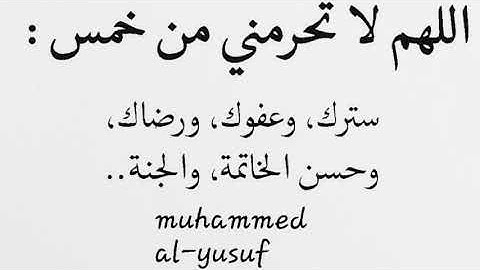 اللهم لا تحرمني من خمس :
سترك، وعفوك، ورضاك،
وحسن الخاتمة، والجنة..
muhammed
al-yusuf